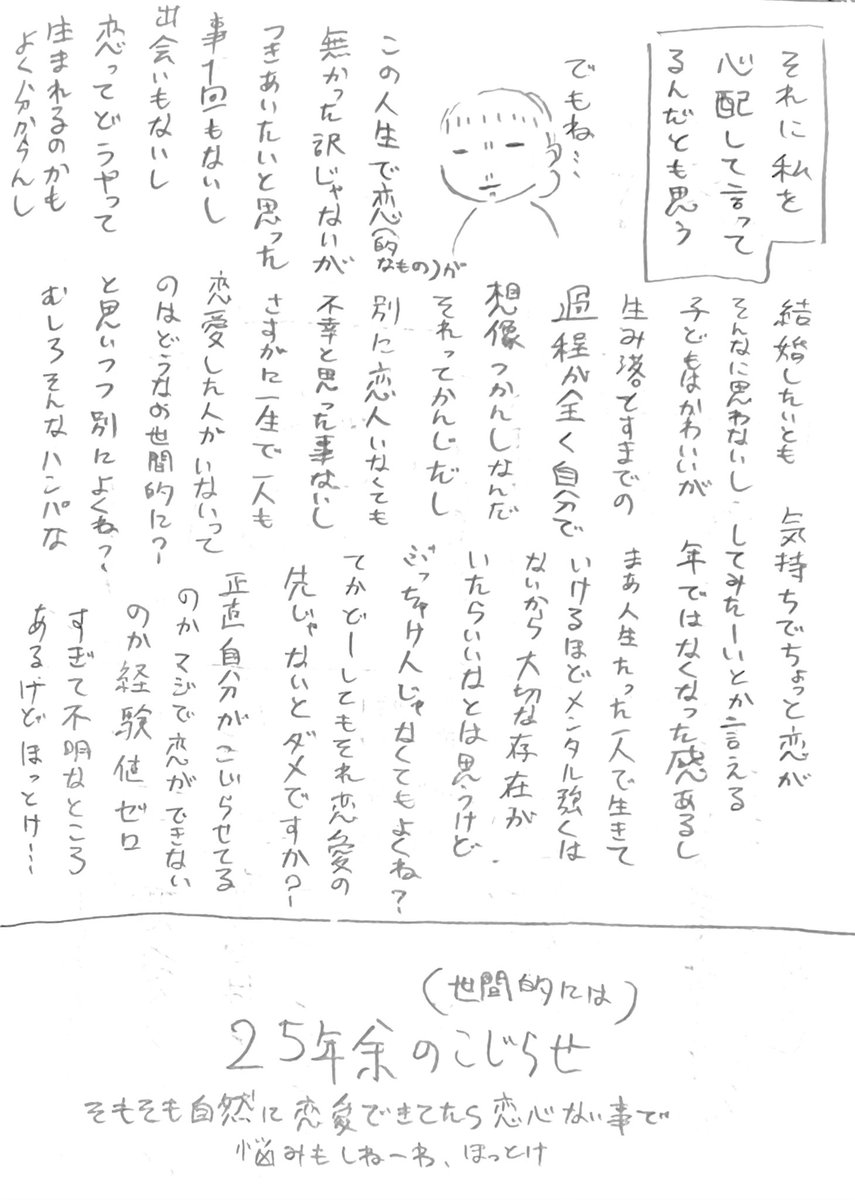 それに私を
心配して言って
るんだとも思う
でもね…
この人生で恋(的なもの)が
無かった訳じゃないが
つきあいたいと思った
事1回もないし
出会いもないし
恋ってどうやって
生まれるのかも
よく分からんし
結婚したいとも
そんなに思わないし
子どもはかわいいが
生み落とすまでの
過程が全く自分で
想像つかんしなんだ
それってかんじだし
別に恋人いなくても
不幸と思った事ないし
さすがに一生で一人も
恋愛した人がいないって
のはどうなの世間的に?
と思いつつ別によくね?
むしろそんなハンパな
気持ちでちょっと恋が
してみたーいとか言える
年ではなくなった感あるし
まあ人生たった一人で生きて
いけるほどメンタル強くは
ないから大切な存在が
いたらいいなとは思うけど
ぶっちゃけ人じゃなくてもよくね?
てかどーしてもそれ恋愛の
先じゃないとダメですか?
正直自分がこじらせてる
のかマジで恋ができない
のか経験値ゼロ
すぎて不明なところ
あるけどほっとけ…
(世間的には)
25年余のこじらせ
そもそも自然に恋愛できてたら恋心ない事で
悩みもしねーわ、ほっとけ